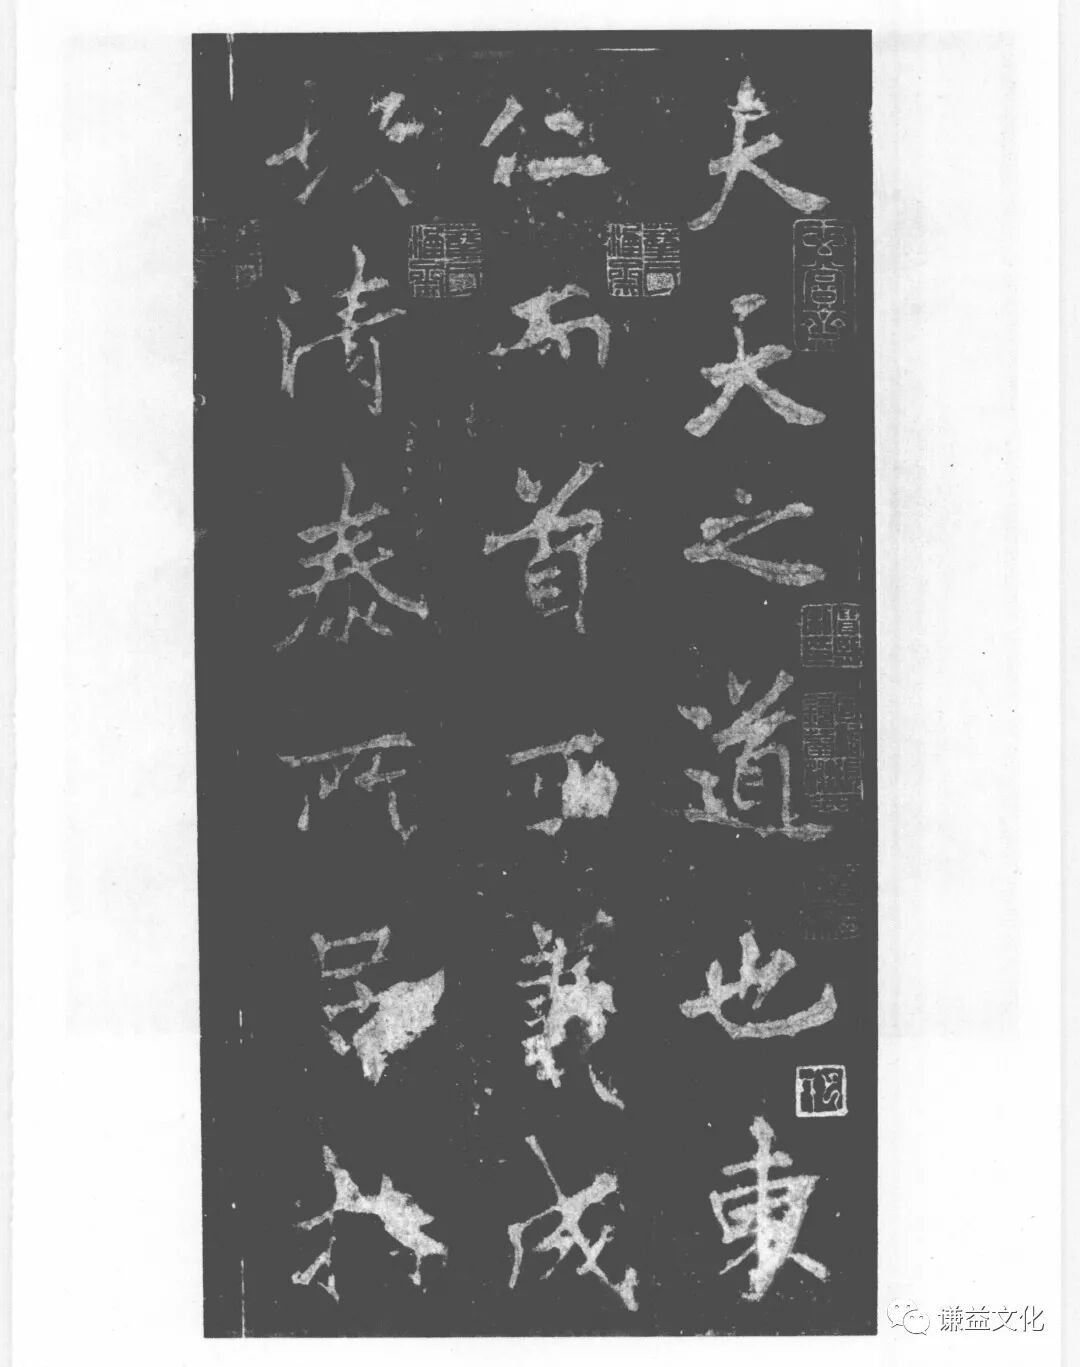 夫天之道也東
仁而首西義成
故清泰所居指
谦益文化